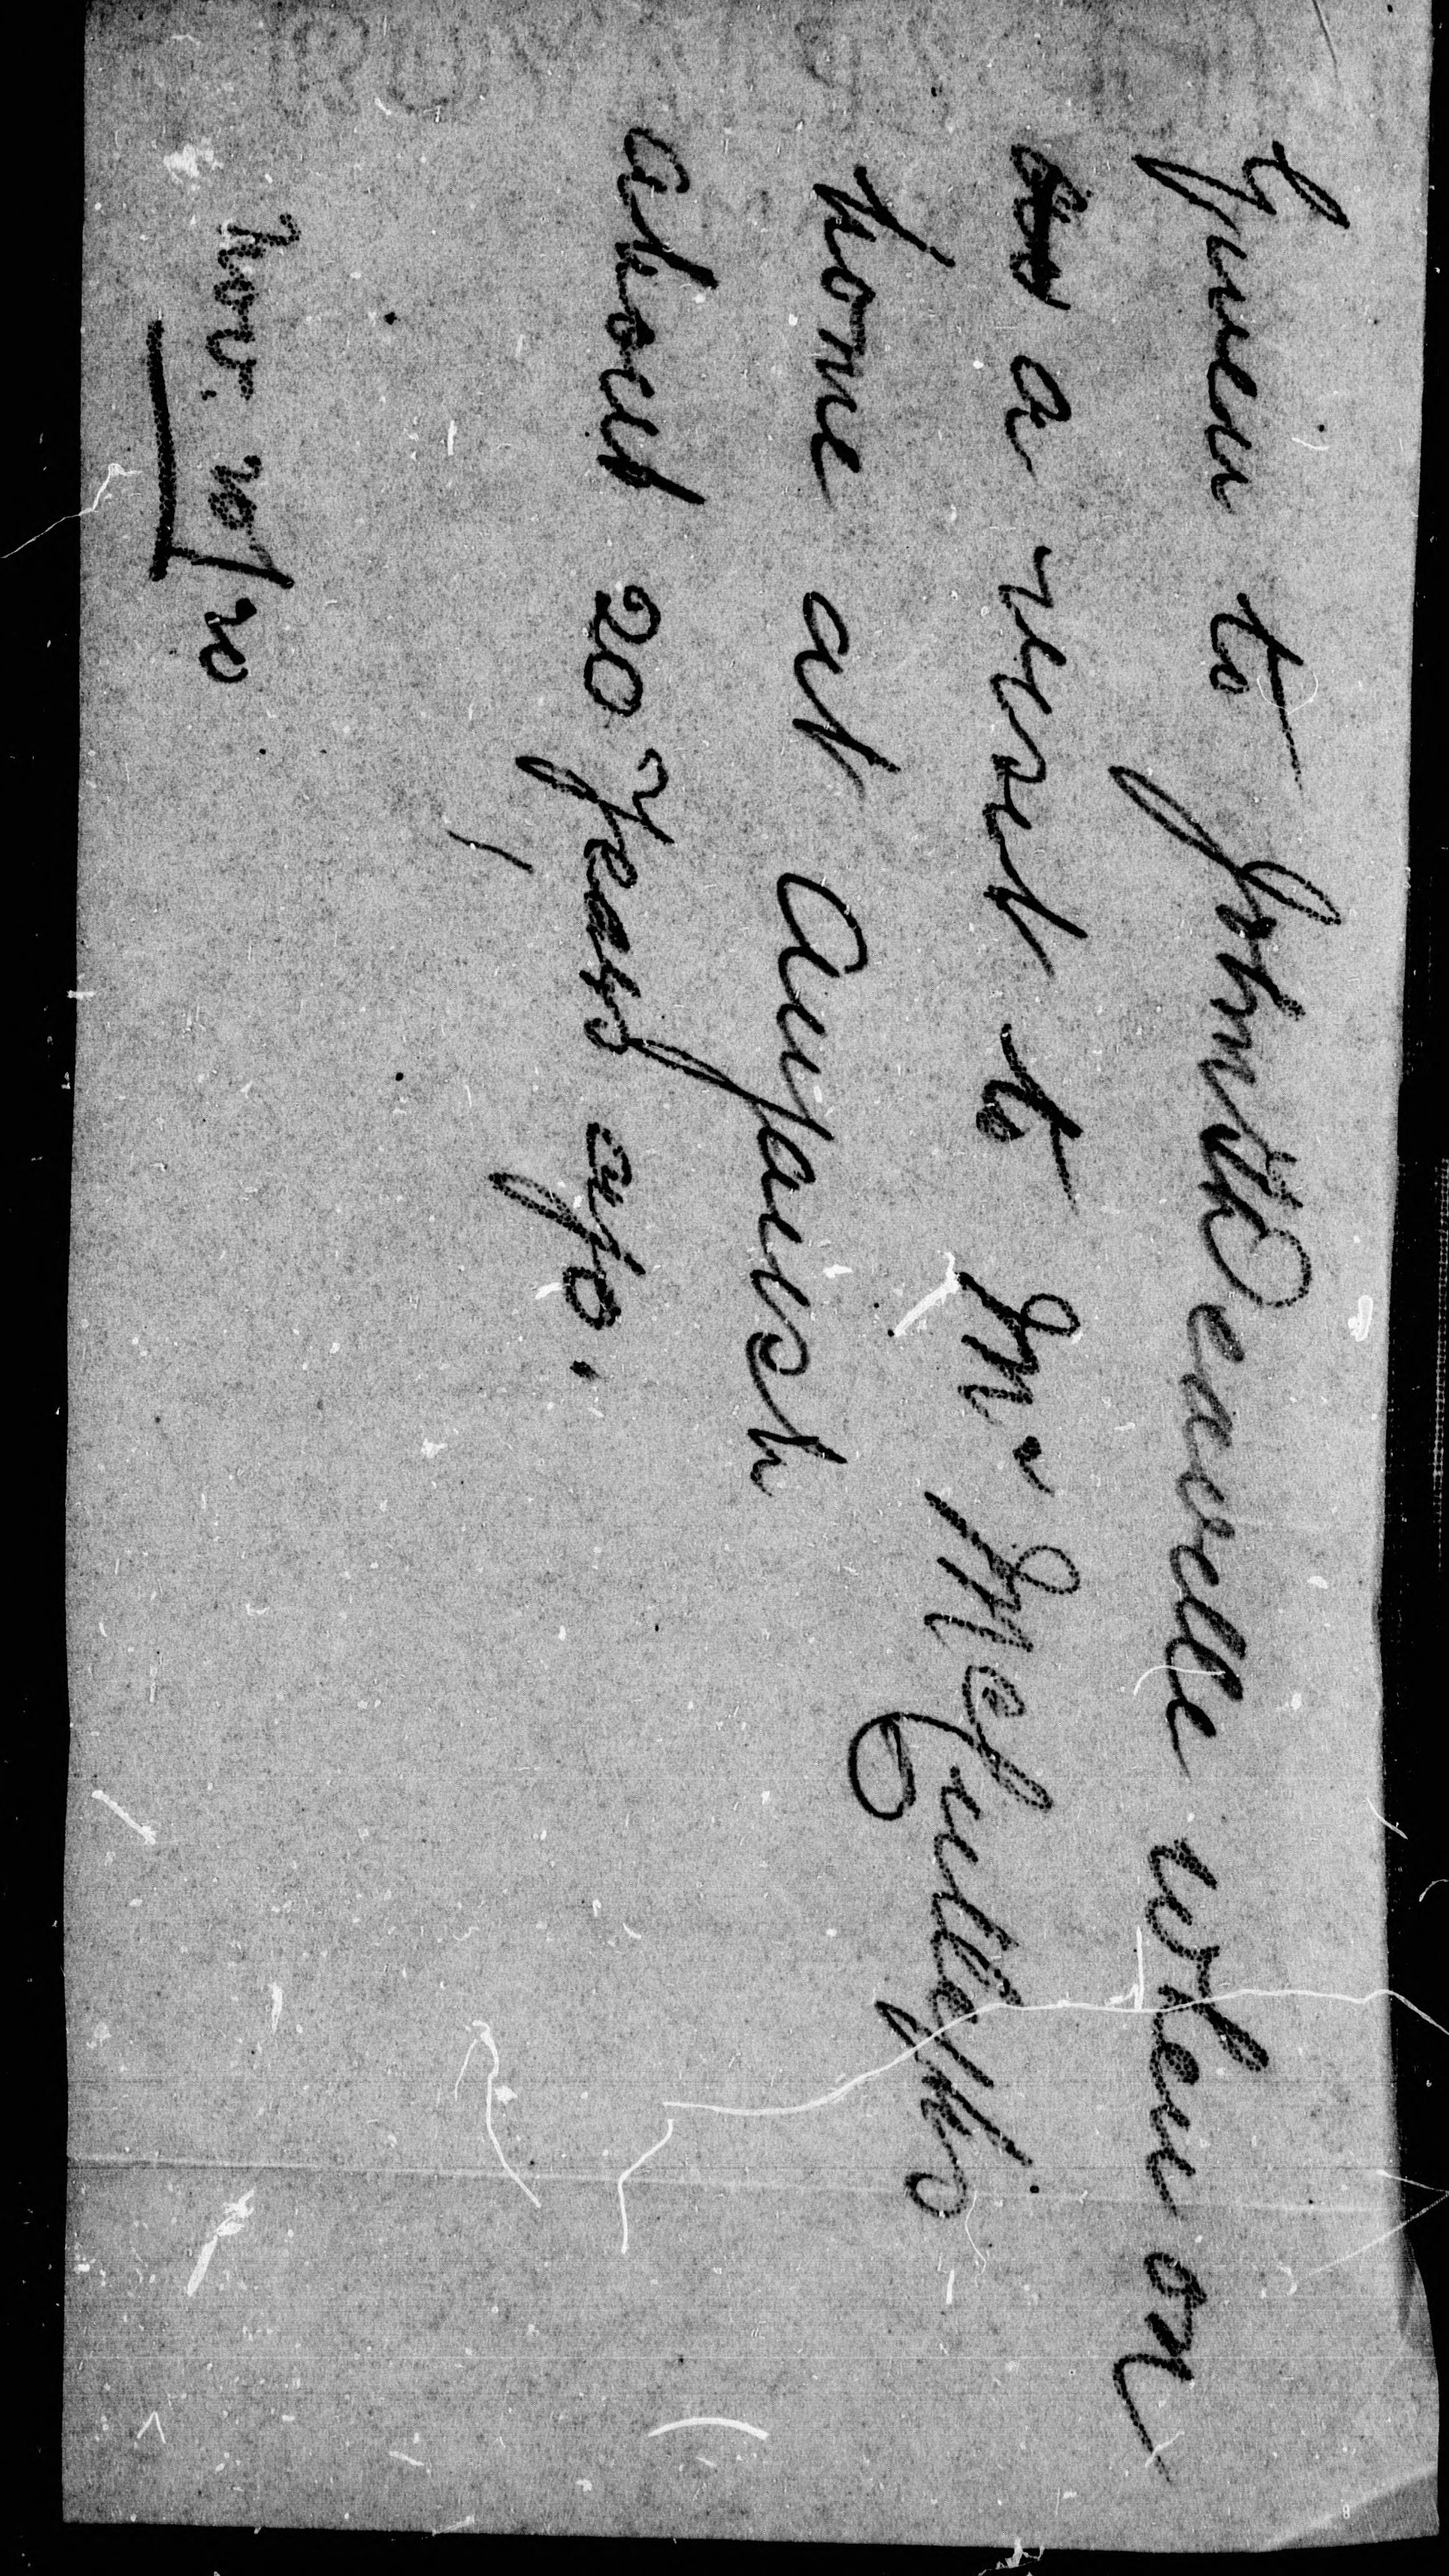 Given to when on
a visit to Mr
home at
about 20 years ago.
Nov. 10/20